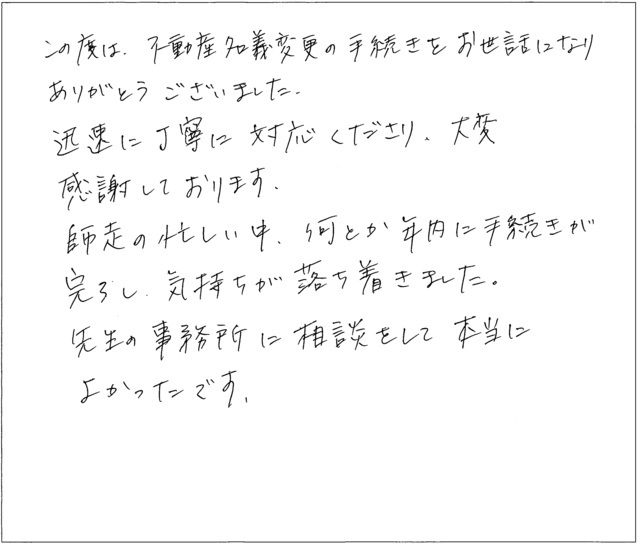 この度は、不動産名義変更の手続きをお世話になり
ありがとうございました。
迅速に丁寧に対応くださり、大変
感謝しております。
師走の忙しい中、何とか年内に手続きが
完了し、気持ちが落ち着きました。
先生の事務所に相談をして本当に
よかったです。